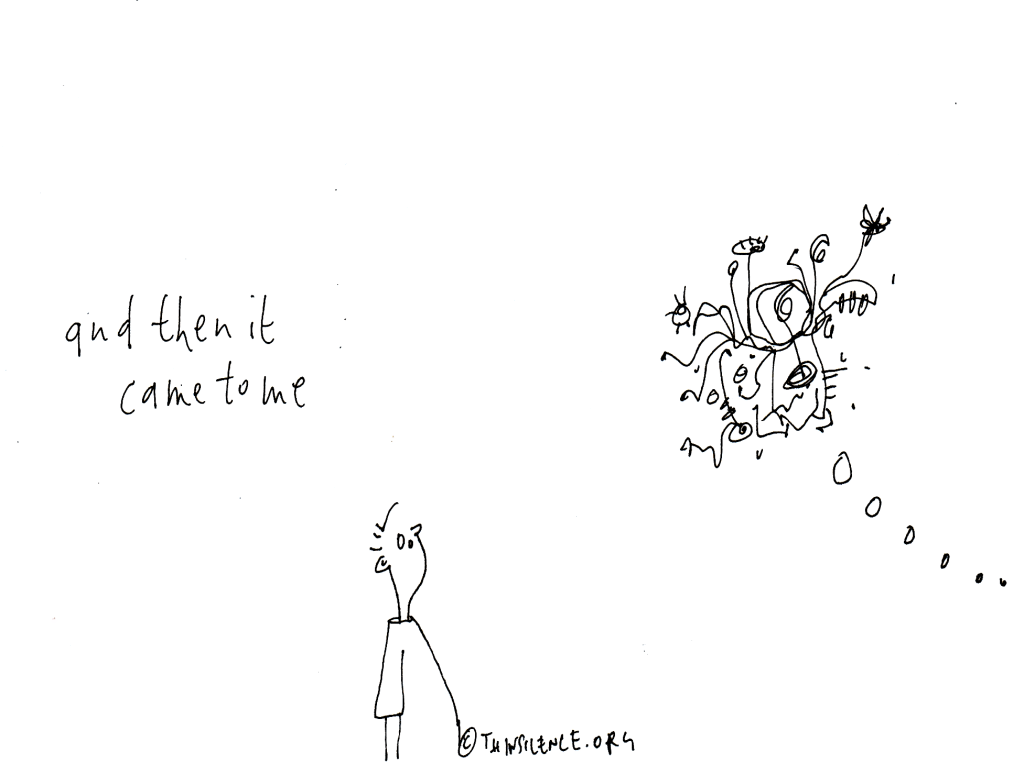 and then it
came to me
© THINSILENCE.ORG